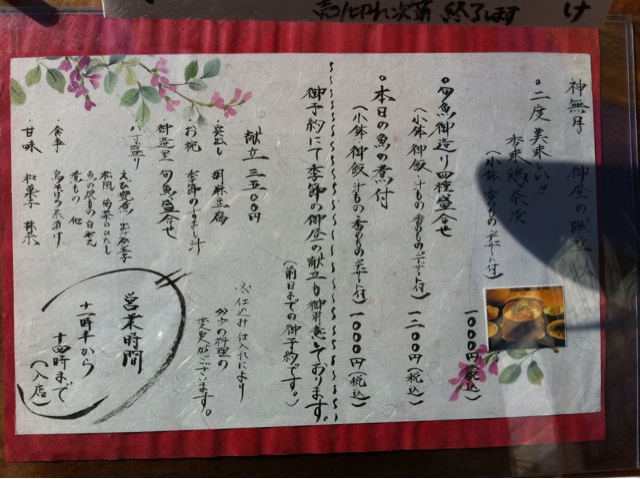 売り切れ次第 終了します
け
神無月 御昼の献立
・二度美味しい!!
(小鉢 香のもの デザート付)
一〇〇〇円(税込)
・旬魚御造り四種盛合せ
(小鉢 御飯 汁もの 香のもの デザート付) 一二〇〇円(税込)
・本日の魚の煮付
(小鉢 御飯 汁もの 香のもの デザート付) 一〇〇〇円(税込)
御予約にて季節の御昼の献立も御用意しております。
(前日までの御予約です。)
献立 三五〇〇円
・突出し 胡麻豆腐
・お椀 季節のすまし汁
・御造里 旬魚盛合せ
・八寸盛り
煮もの 他
・食事
・甘味 和菓子 抹茶
※仕入れ
料理の
変更がございます。
営業時間
十一時半から
十四時まで
(入店)